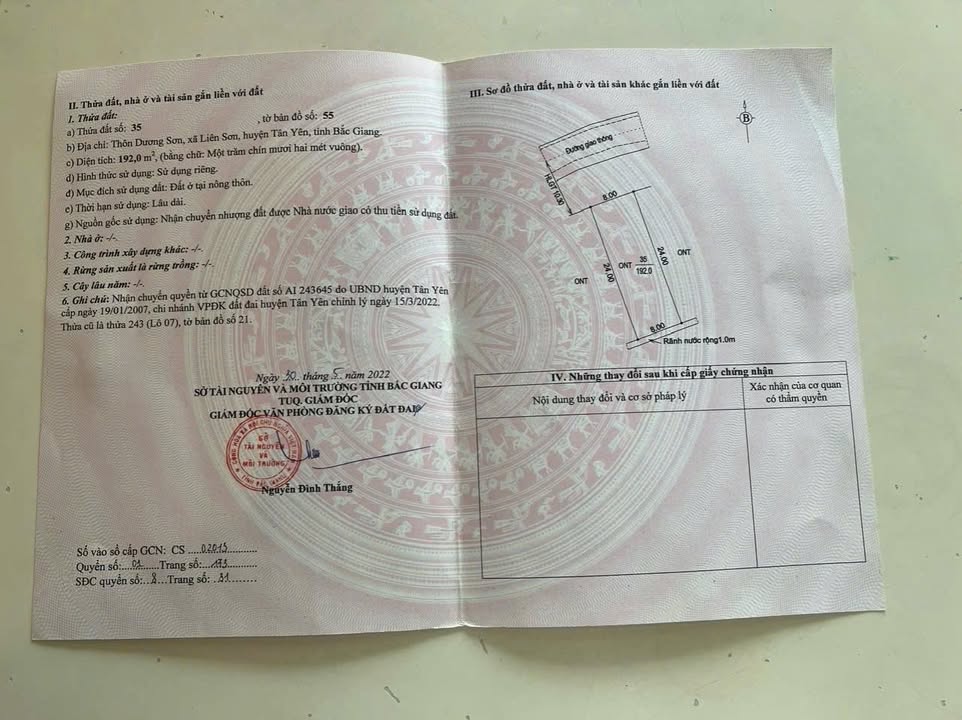 II. Thửa đất, nhà ở và tài sản gắn liền với đất
1. Thửa đất:
a) Thửa đất số: 35 , tờ bản đồ số: 55
b) Địa chỉ: Thôn Dương Sơn, xã Liên Sơn, huyện Tân Yên, tỉnh Bắc Giang.
c) Diện tích: 192,0 m², (bằng chữ: Một trăm chín mươi hai mét vuông).
d) Hình thức sử dụng: Sử dụng riêng.
đ) Mục đích sử dụng đất: Đất ở tại nông thôn.
e) Thời hạn sử dụng: Lâu dài.
g) Nguồn gốc sử dụng: Nhận chuyển nhượng đất được Nhà nước giao có thu tiền sử dụng đất.
2. Nhà ở: -/-.
3. Công trình xây dựng khác: -/-.
4. Rừng sản xuất là rừng trồng: -/-.
5. Cây lâu năm: -/-.
6. Ghi chú: Nhận chuyển quyền từ GCNQSD đất số AI 243645 do UBND huyện Tân Yên
cấp ngày 19/01/2007, chi nhánh VPĐK đất đai huyện Tân Yên chỉnh lý ngày 15/3/2022.
Thửa cũ là thửa 243 (Lô 07), tờ bản đồ số 21.
Ngày 30 tháng 5 năm 2022
SỞ TÀI NGUYÊN VÀ MÔI TRƯỜNG TỈNH BẮC GIANG
TUQ. GIÁM ĐỐC
GIÁM ĐỐC VĂN PHÒNG ĐĂNG KÝ ĐẤT ĐAI
SỞ
TÀI NGUYÊN
VÀ
MÔI TRƯỜNG
TỈNH BẮC GIANG
Nguyễn Đình Thắng
Số vào sổ cấp GCN: CS ....02013............
Quyển số:....01.....Trang số:....173..........
SĐC quyển số:..8...Trang số: ..31.........
III. Sơ đồ thửa đất, nhà ở và tài sản khác gắn liền với đất
B
Đường giao thông
HLGT 10.50
8.00
24.00
ONT
ONT
35
192.0
24.00
ONT
8.00
Rãnh nước rộng1.0m
IV. Những thay đổi sau khi cấp giấy chứng nhận
Nội dung thay đổi và cơ sở pháp lý
Xác nhận của cơ quan
có thẩm quyền